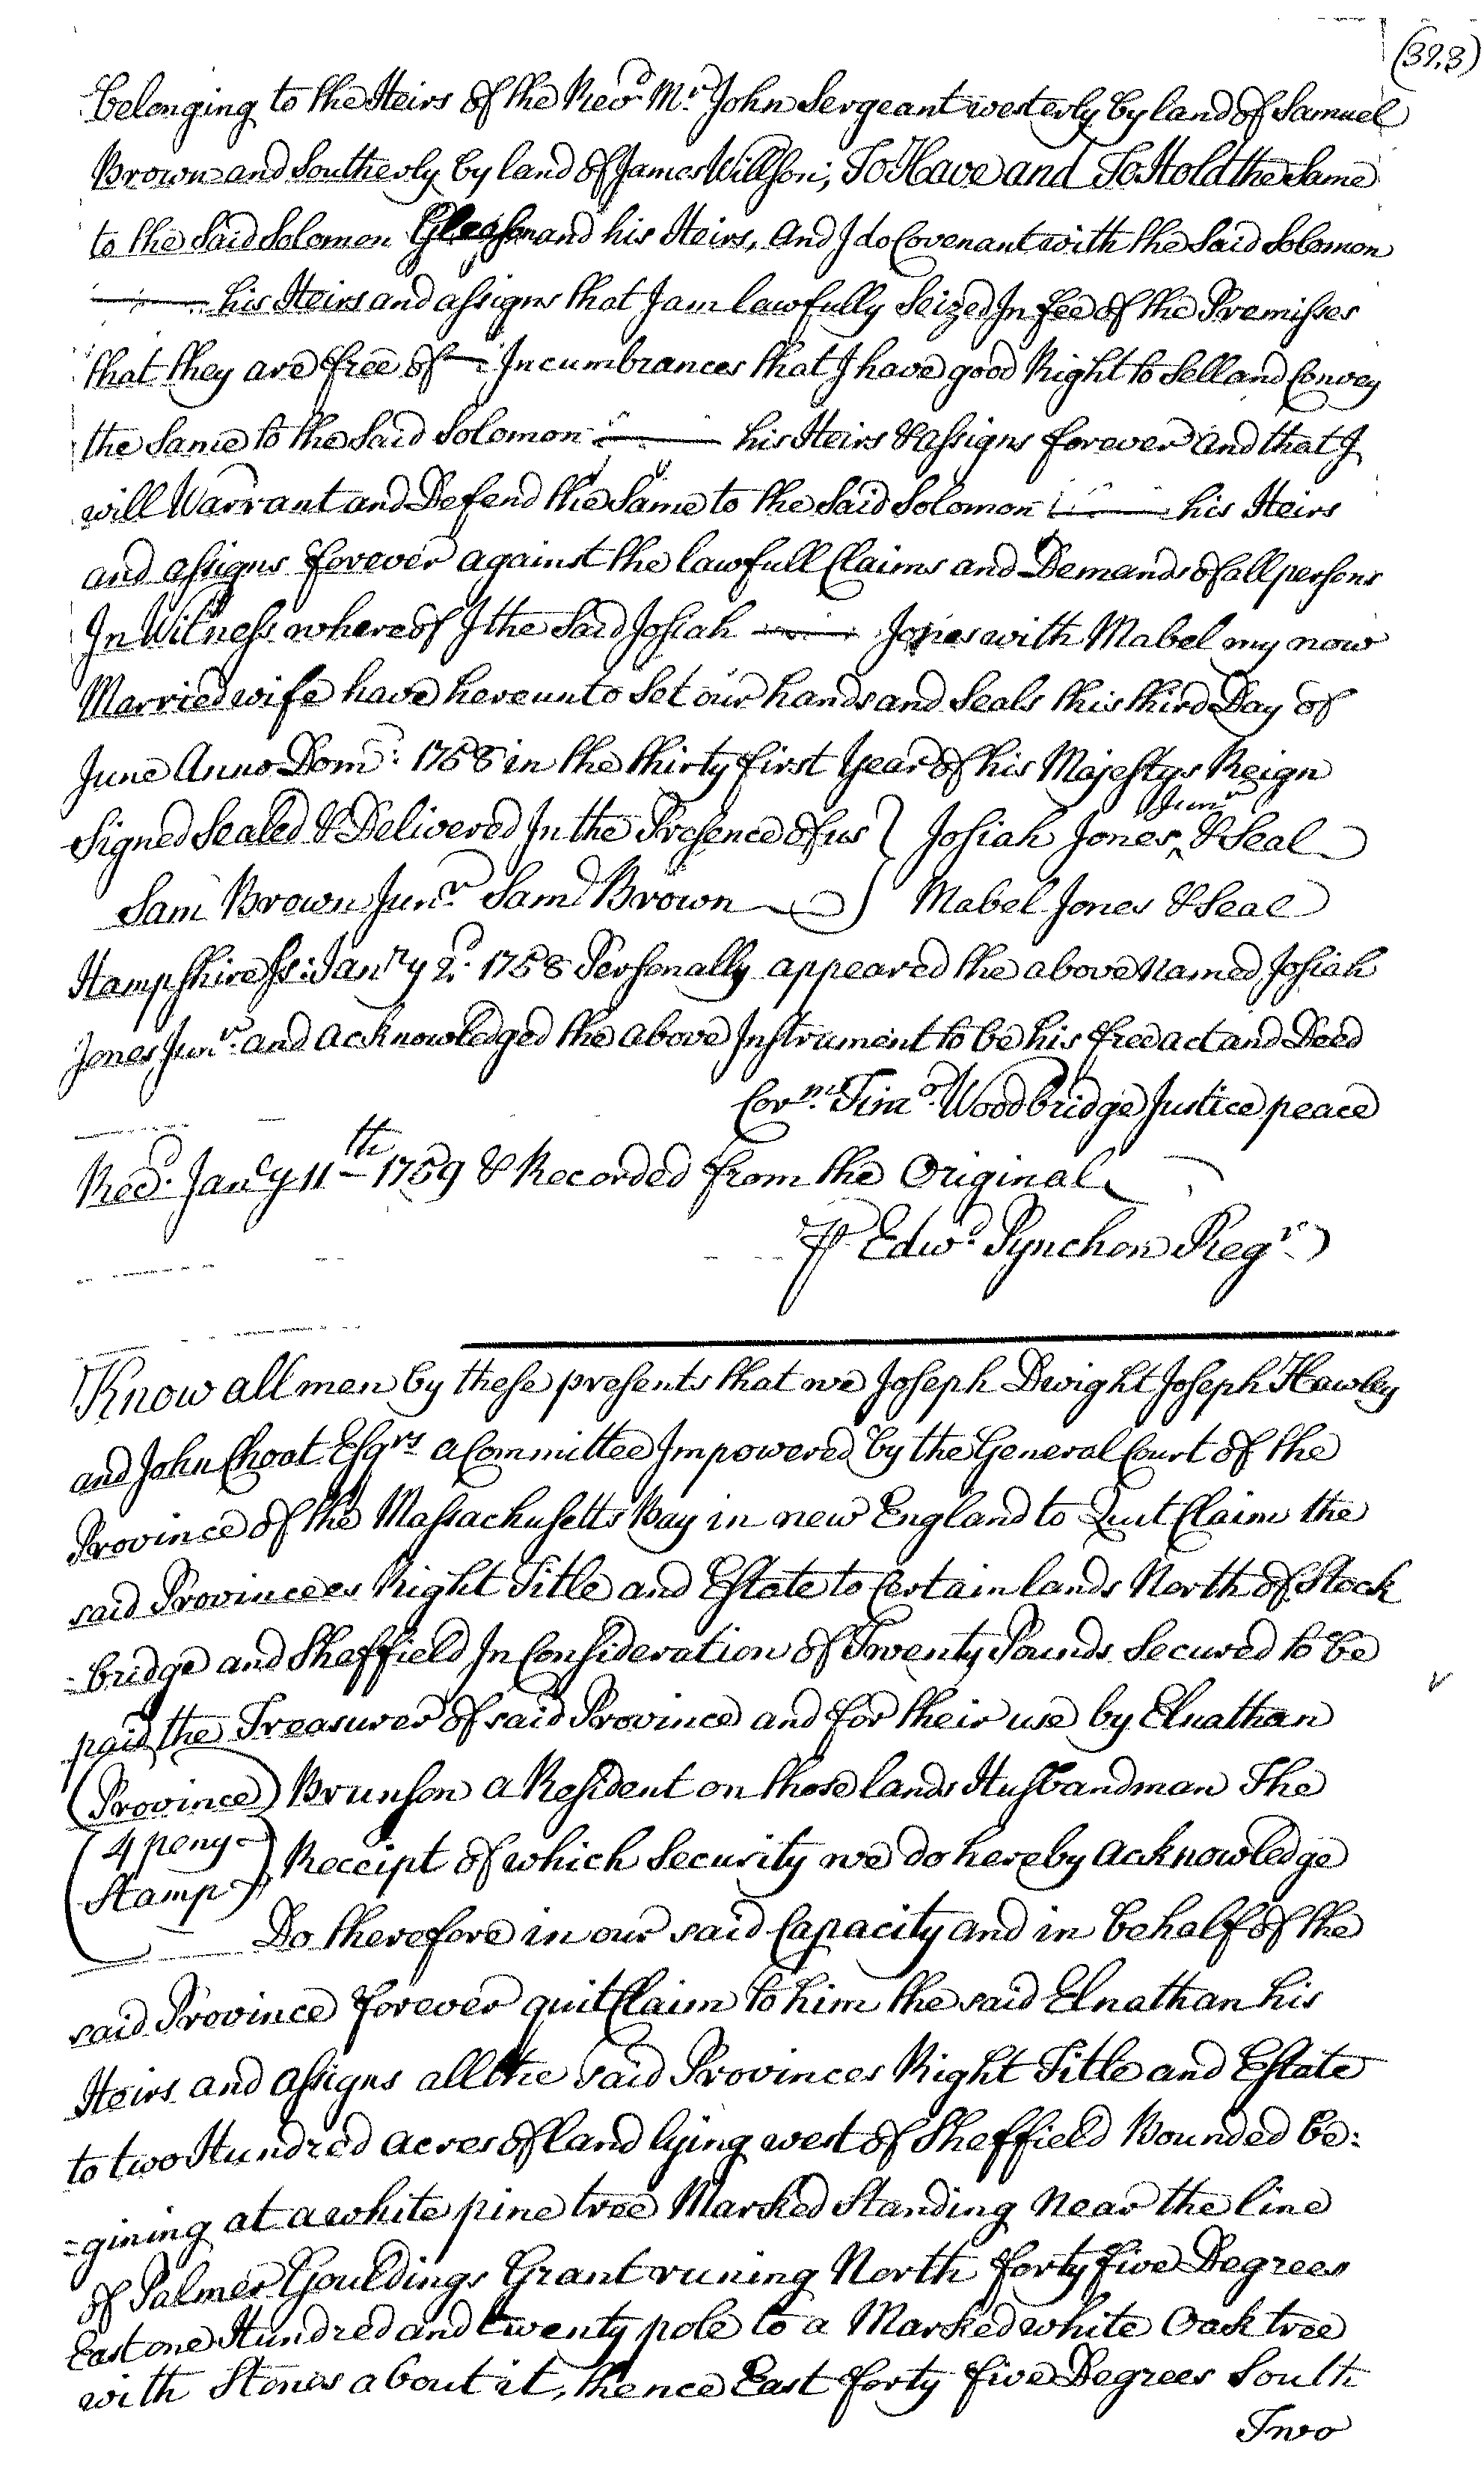 (393)
belonging to the Heirs of the Revd. Mr. John Sergeant westerly by land of Samuel
Brown and Southerly by land of James Willson; To Have and To Hold the Same
to the Said Solomon Gleason and his Heirs, and I do Covenant with the Said Solomon
—— his Heirs and assigns that I am lawfully Seized In fee of the Premisses
that they are free of — Incumbrances that I have good Right to Sell and Convey
the Same to the Said Solomon —— his Heirs & assigns forever and that I
will Warrant and Defend the Same to the Said Solomon —— his Heirs
and assigns forever against the lawfull Claims and Demands of all persons
In Witness whereof I the Said Josiah —— Jones with Mabel my now
Married wife have hereunto Set our hands and Seals this third Day of
June Anno Dom: 1758 in the thirty first Year of his Majestys Reign
Signed Sealed & Delivered In the Presence of us } Josiah Jones ^Junr & Seal
Sam Brown Junr. Samd Brown —— ) Mabel Jones & Seal
Hampshire ss: Janry 2d. 1758 Personally appeared the above Named Josiah
Jones Junr. and acknowledged the above Instrument to be his free act and Deed
Corm. Timo. Woodbridge Justice peace
Recd. Jancy 11th 1759 & Recorded from the Original
P Edwd Pynchon Regr
Know all men by these presents that we Joseph Dwight Joseph Hawley
and John Choat Esqrs a Committee Impowered by the General Court of the
Province of the Massachusetts Bay in new England to Quit Claim the
said Provincees Right Title and Estate to Certain lands North of Stock
=bridge and Sheffield In Consideration of Twenty Pounds Secured to be
paid the Treasurer of said Province and for their use by Elnathan
(Province) Brunson a Resident on those lands Husbandman The
(4 peny Stamp) Receipt of which Security we do hereby acknowledge
Do therefore in our said Capacity and in behalf of the
said Province forever quit Claim to him the said Elnathan his
Heirs and assigns all the said Provinces Right Title and Estate
to two Hundred acres of land lying west of Sheffield Bounded be:
=gining at a white pine tree Marked Standing Near the line
of Palmer Gouldings Grant runing North forty five Degrees
East one Hundred and twenty pole to a Marked white Oak tree
with Stones about it, thence East forty five Degrees South
Two